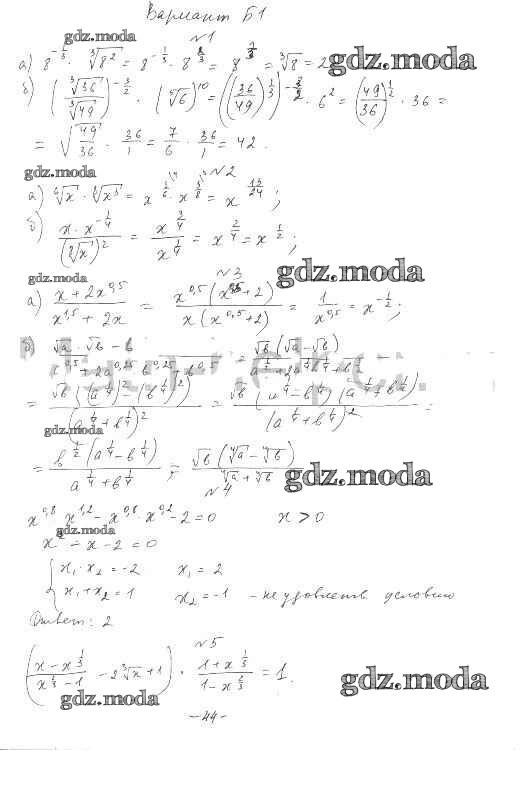 Вариант Б1
№1
gdz.moda
а) 8^(-1/3) · ∛(8²) = 8^(-1/3) · 8^(2/3) = 8^(1/3) = ∛8 = 2
gdz.moda
б) (∛36 / ∛49)^(-3/2) · (⁵√6)^10 = ((36/49)^(1/3))^(-3/2) · 6² = (49/36)^(1/2) · 36 =
= √(49/36) · 36/1 = 7/6 · 36/1 = 42.
gdz.moda
№2
а) ⁶√x · ⁸√(x³) = x^(1/6) · x^(3/8) = x^(13/24);
б) (x · x^(-1/4)) / (⁸√x)² = x^(3/4) / x^(1/4) = x^(2/4) = x^(1/2);
gdz.moda
№3
gdz.moda
а) (x + 2x^0,5) / (x^1,5 + 2x) = x^0,5 (x^0,5 + 2) / (x (x^0,5 + 2)) = 1 / x^0,5 = x^(-1/2);
б) (√a · √b - b) / = √b (√a - √b) /
gdz.moda
= b^(1/2) (a^(1/4) - b^(1/4)) / (a^(1/4) + b^(1/4)) = √b (⁴√a - ⁴√b) / (⁴√a + ⁴√b)
gdz.moda
№4
x^0,8 x^1,2 - x^0,8 · x^0,2 - 2 = 0 x > 0
gdz.moda
x² - x - 2 = 0
{ x₁ · x₂ = -2 x₁ = 2
x₁ + x₂ = 1 x₂ = -1 - не удовлетв. условию
Ответ: 2
№5
((x - x^(1/3)) / (x^(2/3) - 1) - 2∛x + 1) · (1 + x^(1/3)) / (1 - x^(2/3)) = 1.
gdz.moda
gdz.moda
- 44 -